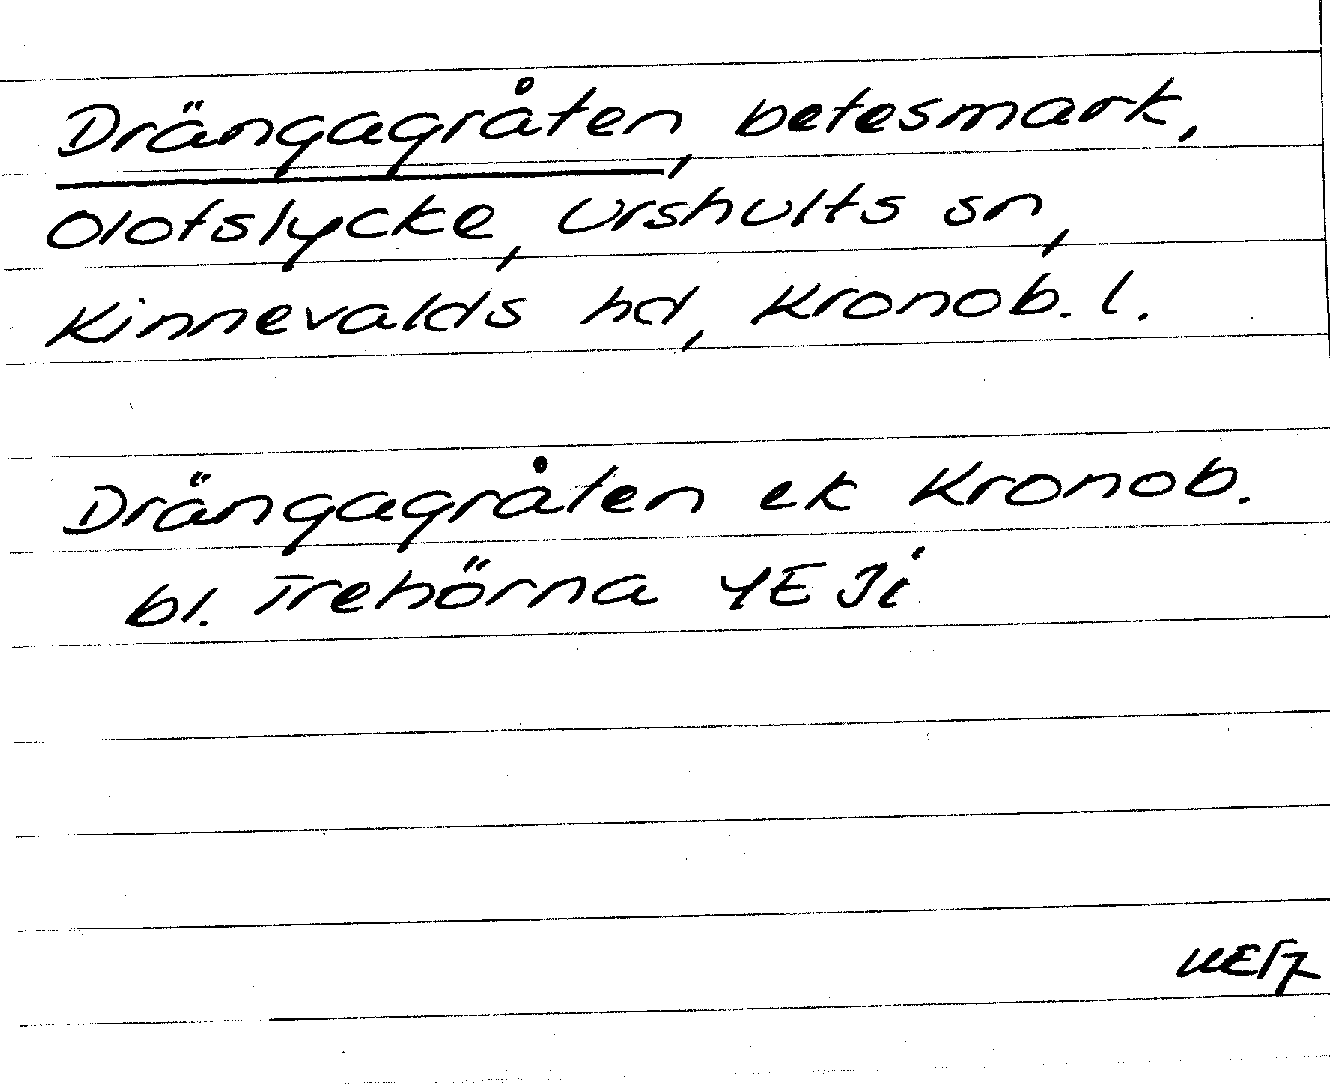 Drängagråten, betesmark,
Olofslycke, Urshults sn,
Kinnevalds hd, Kronob. l.
Drängagråten ek Kronob.
bl. Trehörna YE Ji